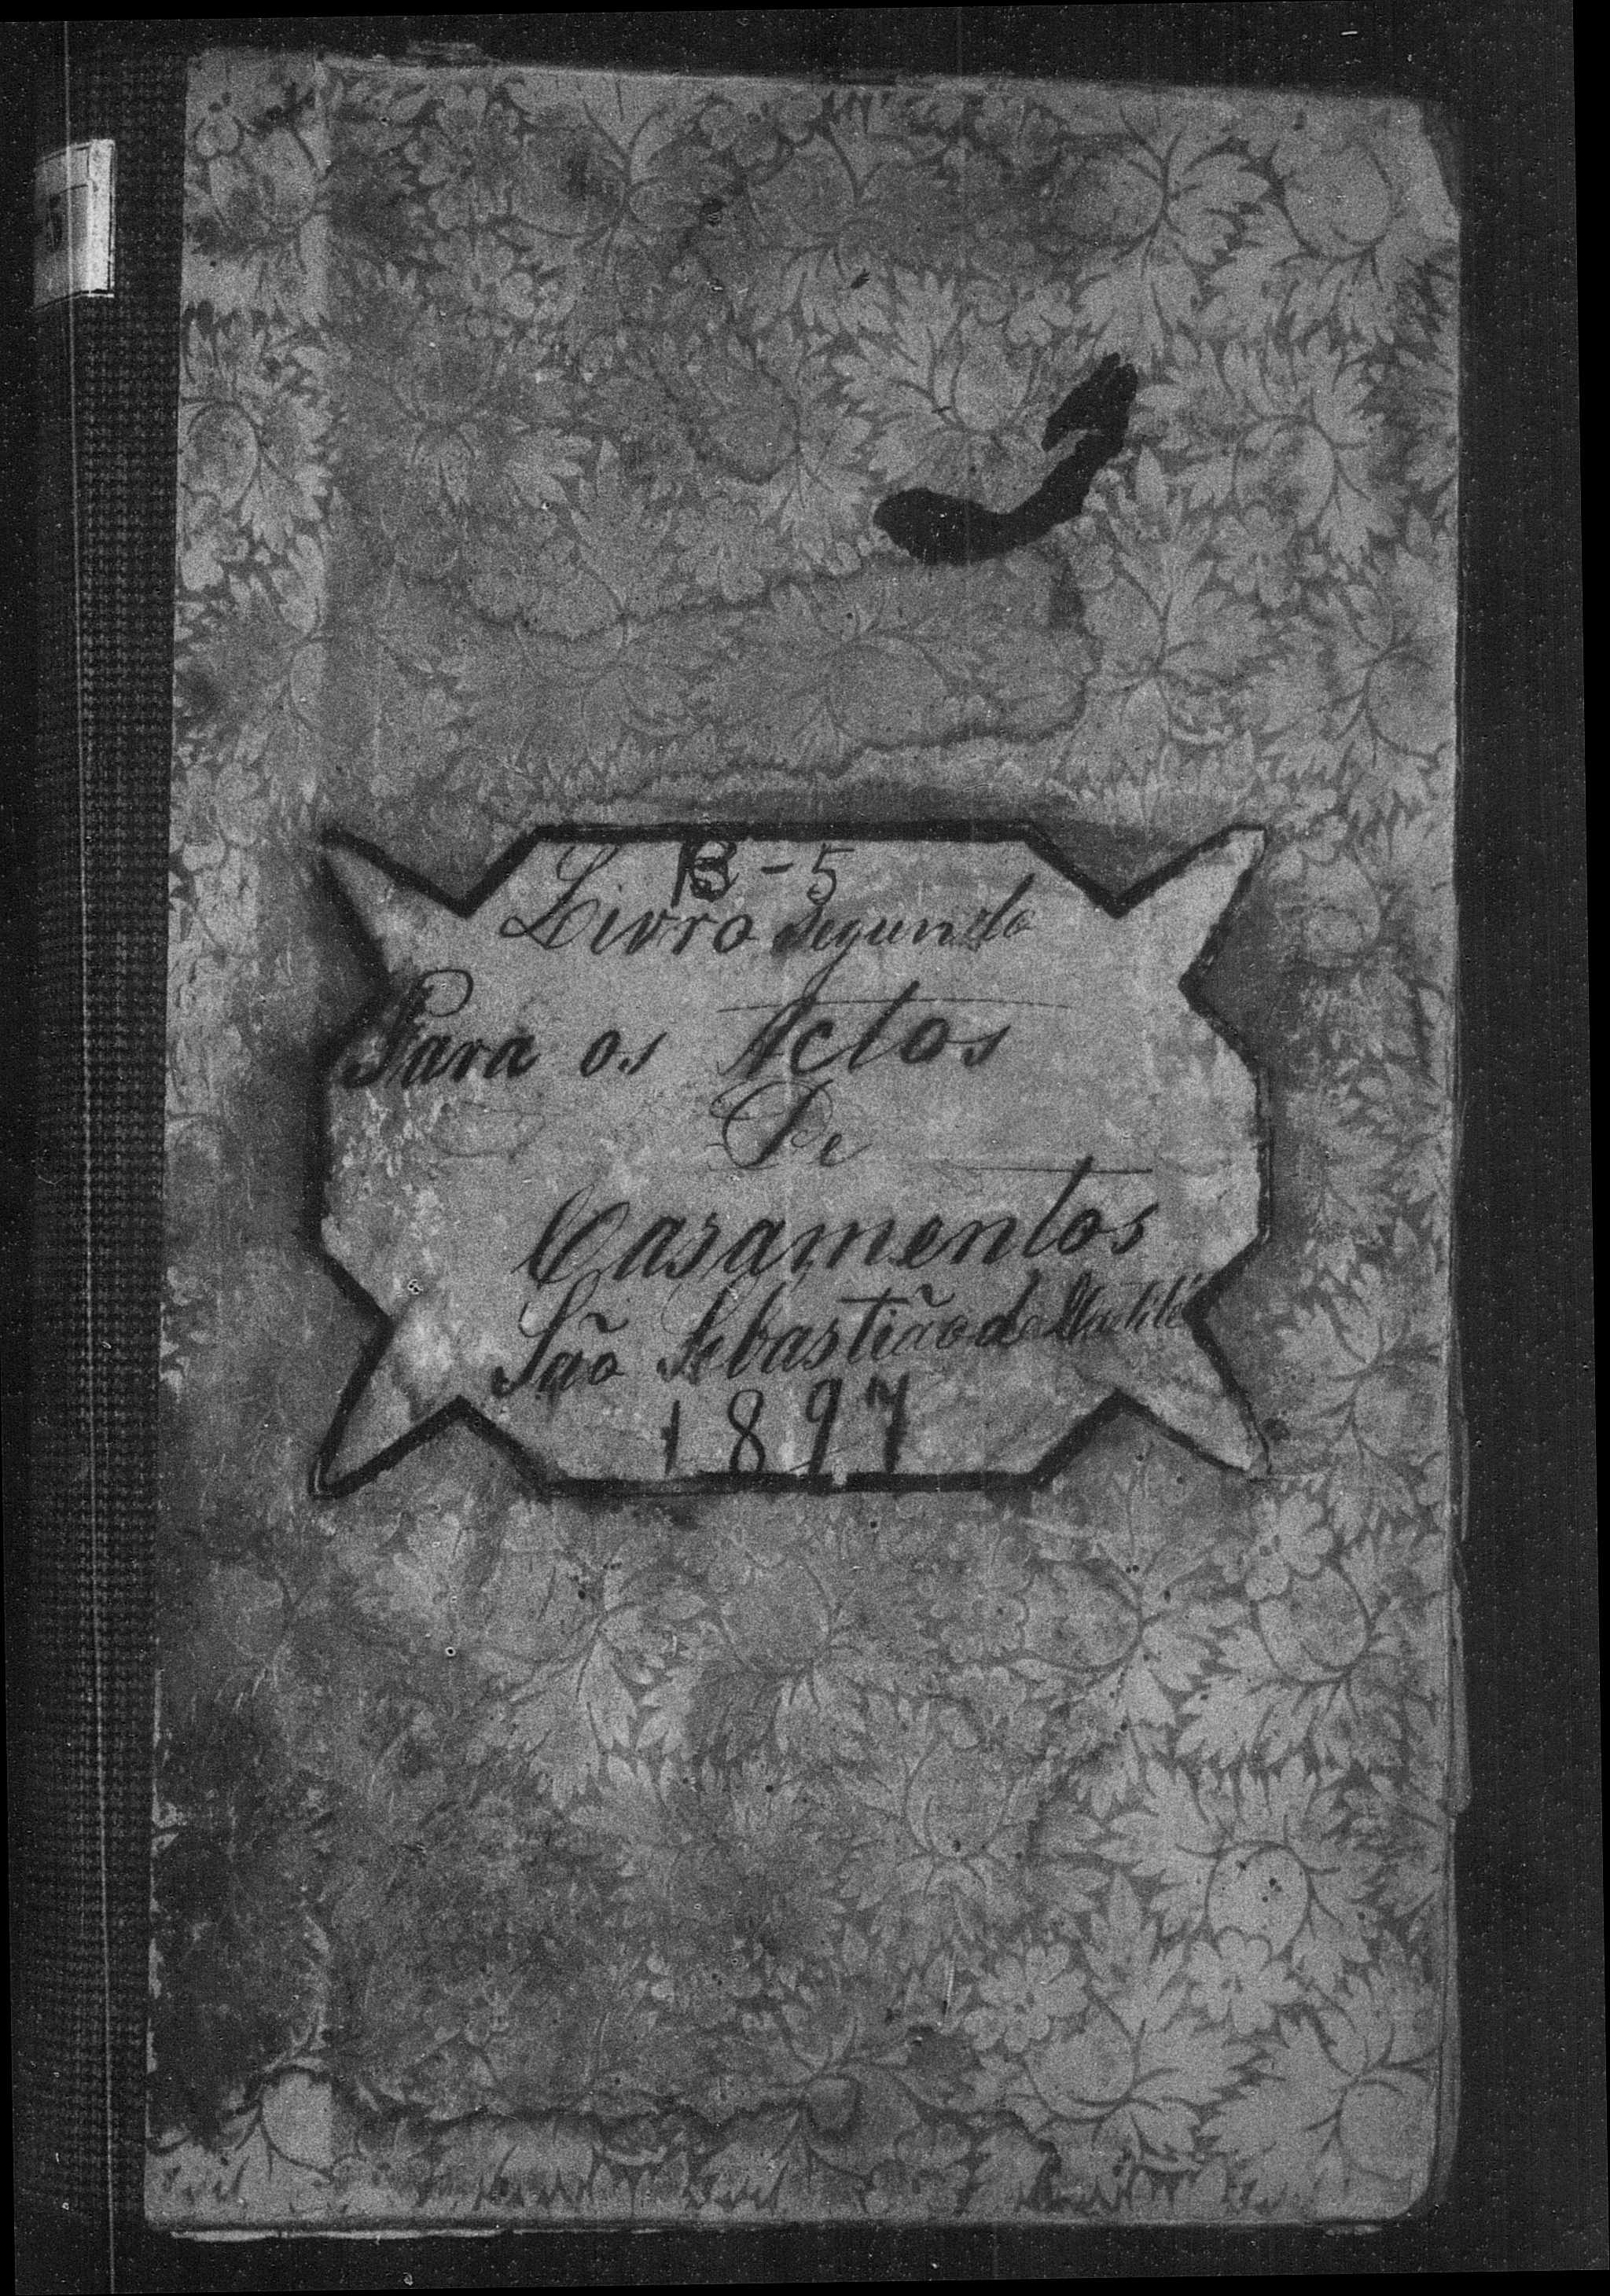 B-5
Livro Segundo
Para os Actos
De
Casamentos
São Sebastião do
1897